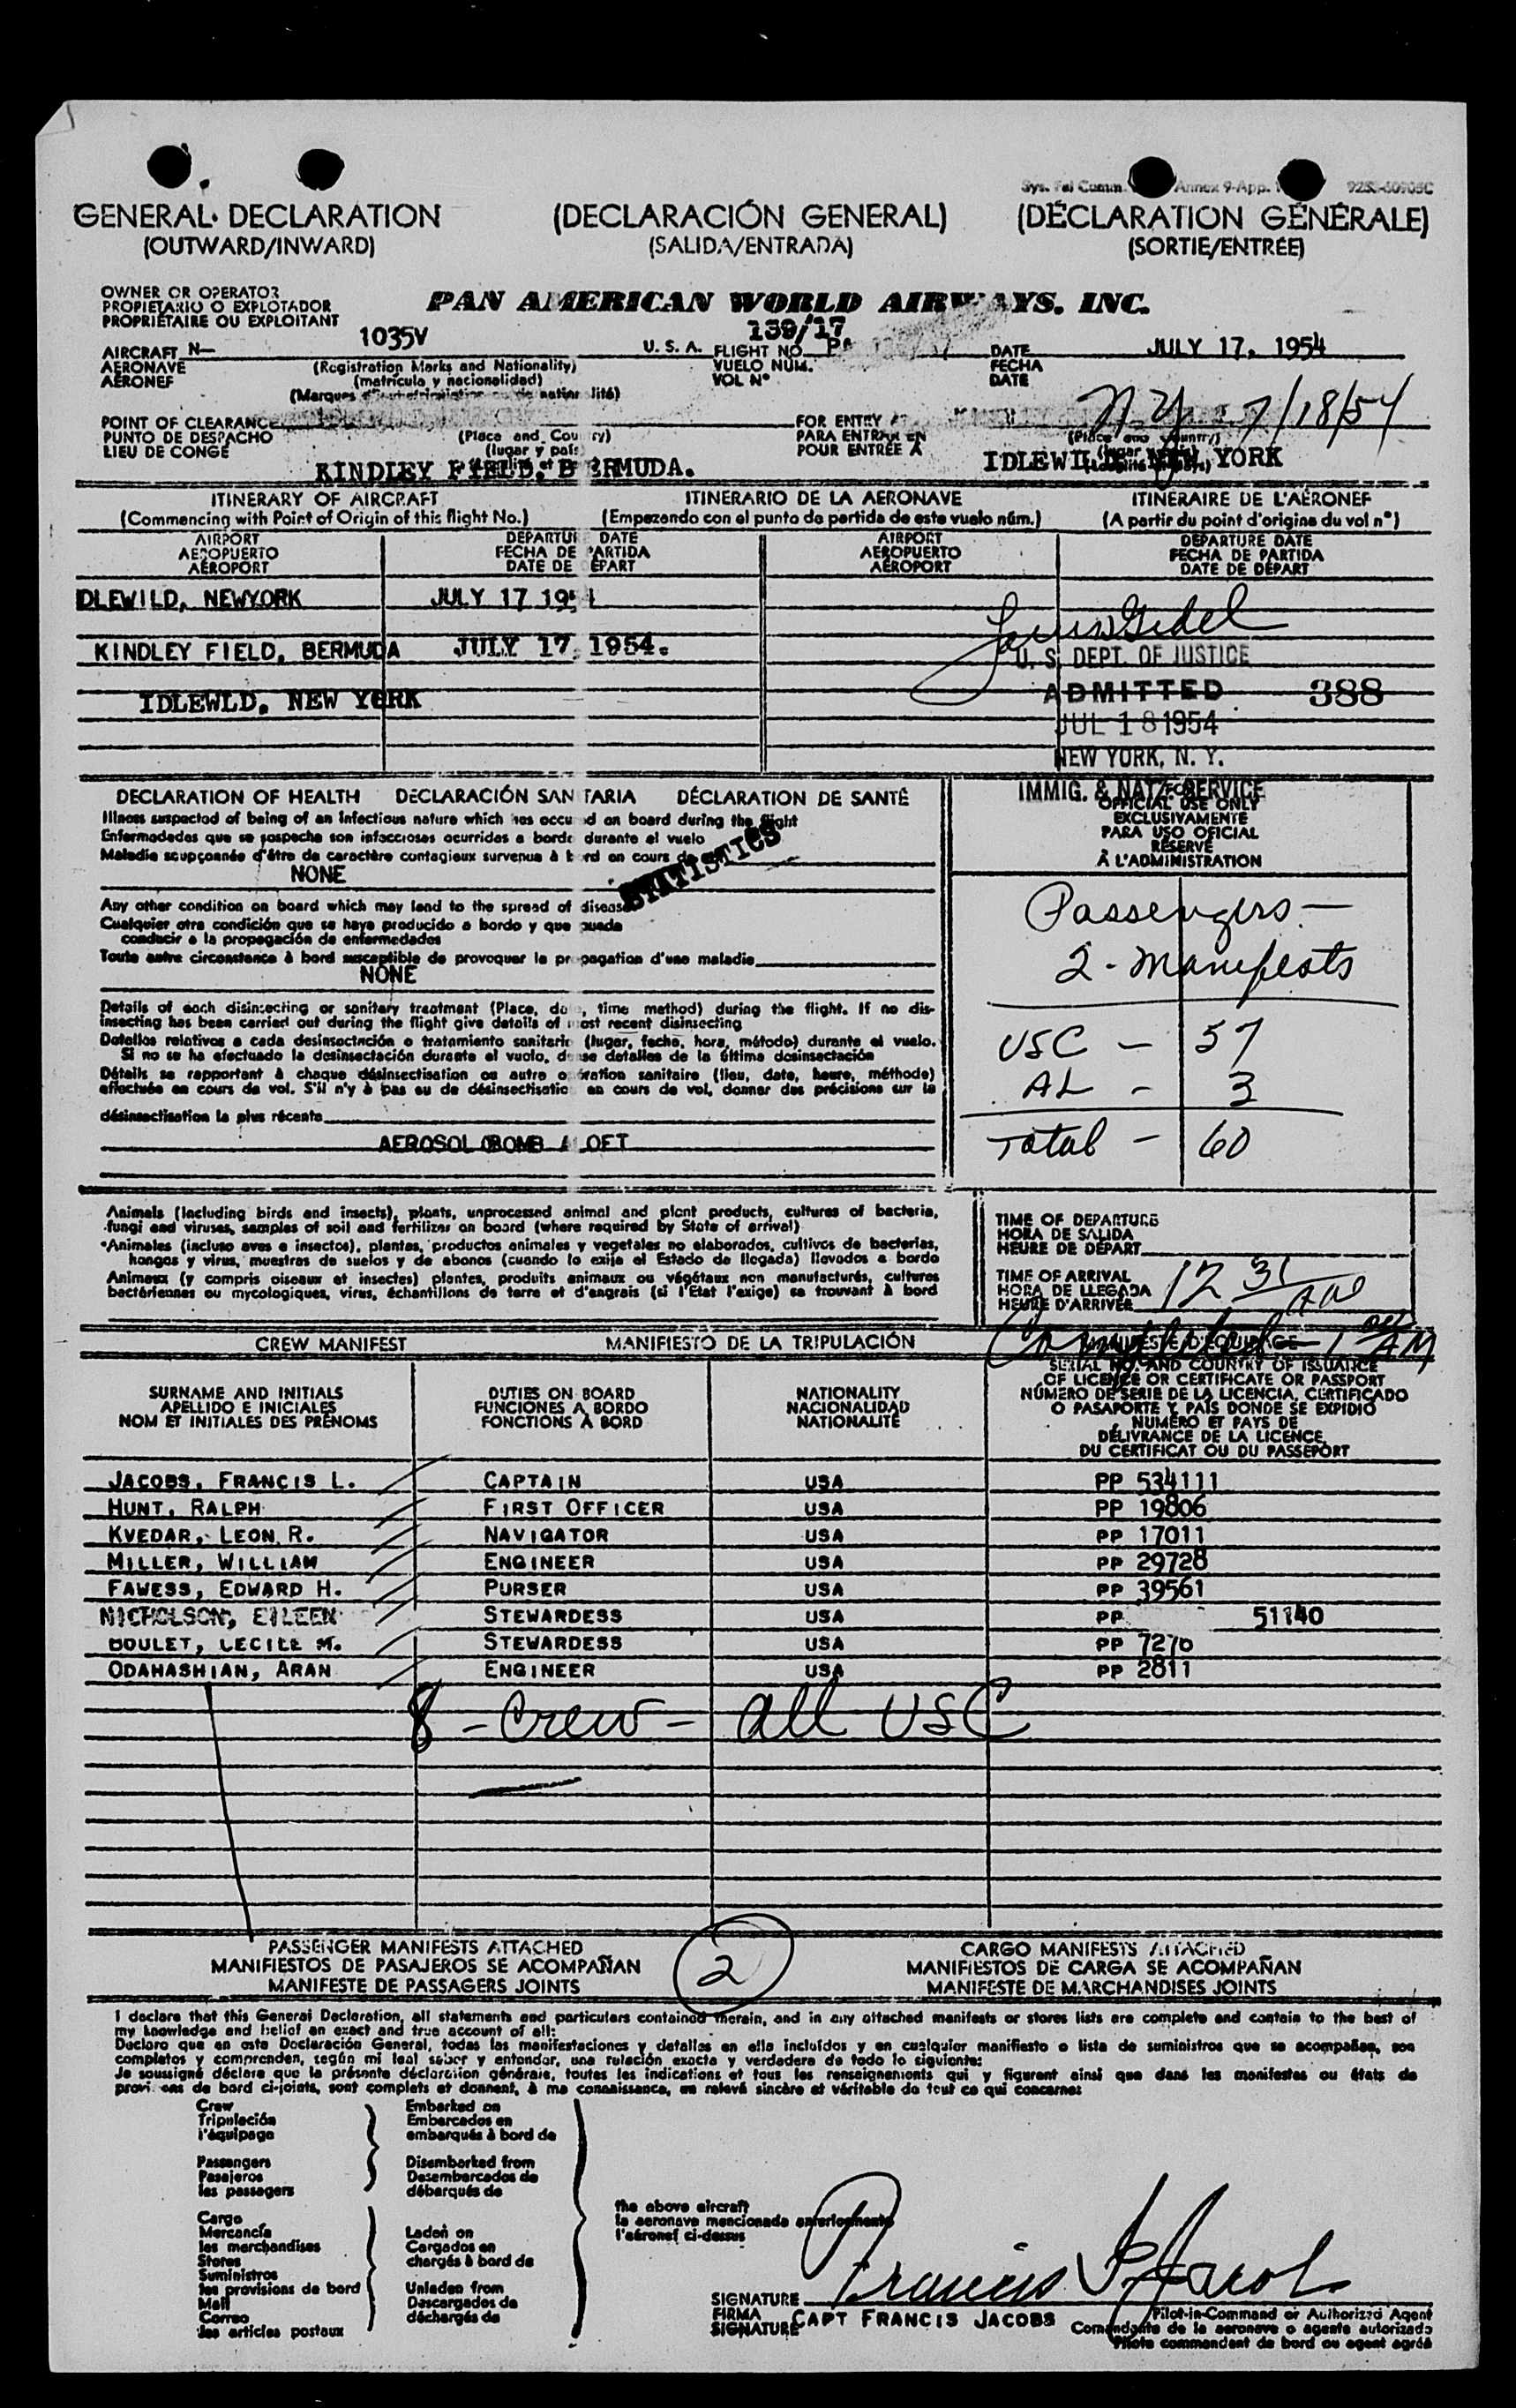 Sys. Fal Comm. Annex 9-App. 1
GENERAL DECLARATION (DECLARACIÓN GENERAL) (DÉCLARATION GÉNÉRALE)
(OUTWARD/INWARD) (SALIDA/ENTRADA) (SORTIE/ENTRÉE)
OWNER OR OPERATOR
PROPIETARIO O EXPLOTADOR
PROPRIÉTAIRE OU EXPLOITANT
PAN AMERICAN WORLD AIRWAYS, INC.
139/17
AIRCRAFT N- 1035V U. S. A. FLIGHT NO. DATE JULY 17, 1954
AERONAVE (Registration Marks and Nationality) VUELO NÚM. FECHA
AÉRONEF (matrícula y nacionalidad) VOL Nº DATE
(Marques d'immatriculation et de nationalité)
N.Y. 7/18/54
POINT OF CLEARANCE FOR ENTRY AT
PUNTO DE DESPACHO (Place and Country) PARA ENTRAR EN (Place and Country)
LIEU DE CONGÉ (lugar y país) POUR ENTRÉE À
KINDLEY FIELD, BERMUDA. IDLEWILD, NEW YORK
ITINERARY OF AIRCRAFT ITINERARIO DE LA AERONAVE ITINÉRAIRE DE L'AÉRONEF
(Commencing with Point of Origin of this flight No.) (Empezando con el punto de partida de este vuelo núm.) (A partir du point d'origine du vol nº)
AIRPORT DEPARTURE DATE AIRPORT DEPARTURE DATE
AEROPUERTO FECHA DE PARTIDA AEROPUERTO FECHA DE PARTIDA
AÉROPORT DATE DE DÉPART AÉROPORT DATE DE DÉPART
DLEWILD, NEWYORK JULY 17 19
KINDLEY FIELD, BERMUDA JULY 17, 1954.
IDLEWLD, NEW YORK
U. S. DEPT. OF JUSTICE
ADMITTED 388
JUL 18 1954
NEW YORK, N. Y.
IMMIG. & NATZ. SERVICE
DECLARATION OF HEALTH DECLARACIÓN SANITARIA DÉCLARATION DE SANTÉ
FOR OFFICIAL USE ONLY
EXCLUSIVAMENTE
PARA USO OFICIAL
RÉSERVÉ
À L'ADMINISTRATION
Illness suspected of being of an infectious nature which has occurred on board during the flight
Enfermedades que se sospecha son infecciosas ocurridas a bordo durante el vuelo
Maladie soupçonnée d'être de caractère contagieux survenue à bord en cours de
STATISTICS
NONE
Any other condition on board which may lead to the spread of disease
Cualquier otra condición que se haya producido a bordo y que pueda
conducir a la propagación de enfermedades
Toute autre circonstance à bord susceptible de provoquer la propagation d'une maladie
NONE
Passengers -
2 - Manifests
USC - 57
AL - 3
Total - 60
Details of each disinsecting or sanitary treatment (Place, date, time method) during the flight. If no dis-
insecting has been carried out during the flight give details of most recent disinsecting
Detalles relativos a cada desinsectación o tratamiento sanitario (lugar, fecha, hora, método) durante el vuelo.
Si no se ha efectuado la desinsectación durante el vuelo, dense detalles de la última desinsectación
Détails se rapportant à chaque désinsectisation ou autre opération sanitaire (lieu, date, heure, méthode)
effectuée en cours de vol. S'il n'y a pas eu de désinsectisation en cours de vol, donner des précisions sur la
désinsectisation la plus récente
AEROSOL BOMB ALOFT
Animals (including birds and insects), plants, unprocessed animal and plant products, cultures of bacteria,
fungi and viruses, samples of soil and fertilizer on board (where required by State of arrival)
Animales (incluso aves e insectos), plantas, productos animales y vegetales no elaborados, cultivos de bacterias,
hongos y virus, muestras de suelos y de abonos (cuando lo exija el Estado de llegada) llevados a bordo
Animaux (y compris oiseaux et insectes) plantes, produits animaux ou végétaux non manufacturés, cultures
bactériennes ou mycologiques, virus, échantillons de terre et d'engrais (si l'Etat l'exige) se trouvant à bord
TIME OF DEPARTURE
HORA DE SALIDA
HEURE DE DÉPART
TIME OF ARRIVAL
HORA DE LLEGADA
HEURE D'ARRIVÉE
12 31 AM
CREW MANIFEST MANIFIESTO DE LA TRIPULACIÓN MANIFESTE D'ÉQUIPAGE
Completed AM
SURNAME AND INITIALS DUTIES ON BOARD NATIONALITY
APELLIDO E INICIALES FUNCIONES A BORDO NACIONALIDAD
NOM ET INITIALES DES PRÉNOMS FONCTIONS À BORD NATIONALITÉ
SERIAL NO. AND COUNTRY OF ISSUANCE
OF LICENCE OR CERTIFICATE OR PASSPORT
NÚMERO DE SERIE DE LA LICENCIA, CERTIFICADO
O PASAPORTE Y PAÍS DONDE SE EXPIDIÓ
NUMÉRO ET PAYS DE
DÉLIVRANCE DE LA LICENCE,
DU CERTIFICAT OU DU PASSEPORT
JACOBS, FRANCIS L. CAPTAIN USA PP 534111
HUNT, RALPH FIRST OFFICER USA PP 19806
KVEDAR, LEON R. NAVIGATOR USA PP 17011
MILLER, WILLIAM ENGINEER USA PP 29728
FAWESS, EDWARD H. PURSER USA PP 39561
NICHOLSON, EILEEN STEWARDESS USA PP 51140
BOULET, CECILE M. STEWARDESS USA PP 7270
ODAHASHIAN, ARAN ENGINEER USA PP 2811
8 - Crew - all USC
PASSENGER MANIFESTS ATTACHED CARGO MANIFESTS ATTACHED
MANIFIESTOS DE PASAJEROS SE ACOMPAÑAN 2 MANIFIESTOS DE CARGA SE ACOMPAÑAN
MANIFESTE DE PASSAGERS JOINTS MANIFESTE DE MARCHANDISES JOINTS
I declare that this General Declaration, all statements and particulars contained therein, and in any attached manifests or stores lists are complete and contain to the best of
my knowledge and belief an exact and true account of all:
Declaro que en esta Declaración General, todas las manifestaciones y detalles en ella incluídos y en cualquier manifiesto o lista de suministros que se acompañen, son
completos y comprenden, según mi leal saber y entender, una relación exacta y verdadera de todo lo siguiente:
Je soussigné déclare que la présente déclaration générale, toutes les indications et tous les renseignements qui y figurent ainsi que dans les manifestes ou états de
provisions de bord ci-joints, sont complets et donnent, à ma connaissance, un relevé sincère et véritable de tout ce qui concerne:
Crew Embarked on
Tripulación Embarcados en
l'équipage embarqués à bord de
Passengers Disembarked from
Pasajeros Desembarcados de
les passagers débarqués de
the above aircraft
la aeronave mencionada anteriormente
l'aéronef ci-dessus
Cargo
Mercancía Laden on
les marchandises Cargados en
Stores chargés à bord de
Suministros
les provisions de bord Unladen from
Mail Descargados de
Correo déchargés de
les articles postaux
Francis L Jacobs
SIGNATURE
FIRMA
SIGNATURE
CAPT FRANCIS JACOBS
Pilot-in-Command or Authorized Agent
Comandante de la aeronave o agente autorizado
Pilote commandant de bord ou agent agréé